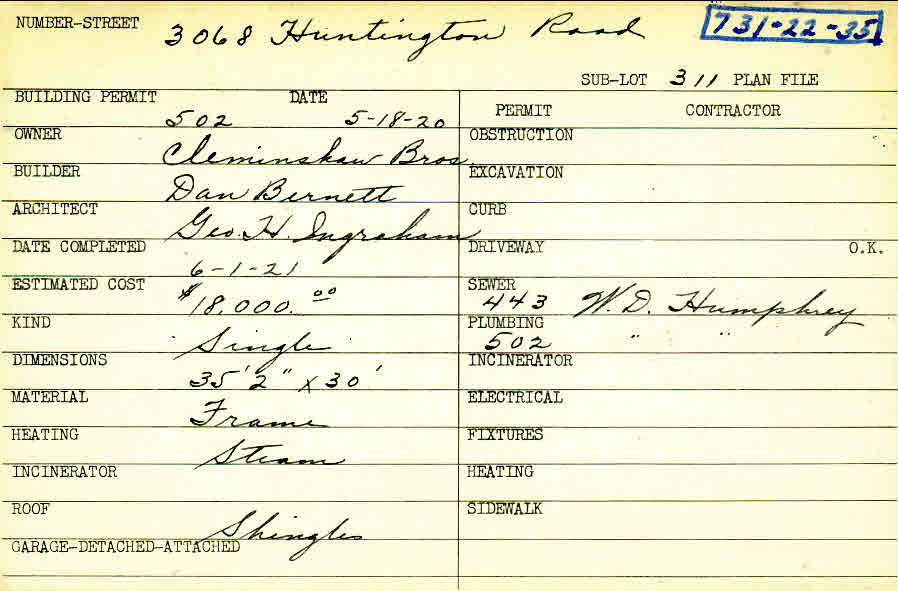 NUMBER-STREET 3068 Huntington Road 731-22-35
SUB-LOT 311 PLAN FILE
BUILDING PERMIT 502 DATE 5-18-20
OWNER Cleminshaw Bros.
BUILDER Dan Bernett
ARCHITECT Geo. H. Ingraham
DATE COMPLETED 6-1-21
ESTIMATED COST $18,000.00
KIND Single
DIMENSIONS 35'2" x 30'
MATERIAL Frame
HEATING Steam
INCINERATOR
ROOF Shingles
GARAGE-DETACHED-ATTACHED
PERMIT CONTRACTOR
OBSTRUCTION
EXCAVATION
CURB
DRIVEWAY O.K.
SEWER 443 W. D. Humphrey
PLUMBING 502 " "
INCINERATOR
ELECTRICAL
FIXTURES
HEATING
SIDEWALK